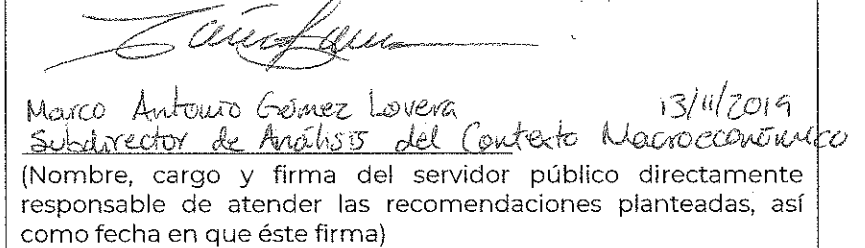 Marco Antonio Gómez Lovera 13/11/2019
Subdirector de Análisis del Contexto Macroeconómico
(Nombre, cargo y firma del servidor público directamente
responsable de atender las recomendaciones planteadas, así
como fecha en que éste firma)